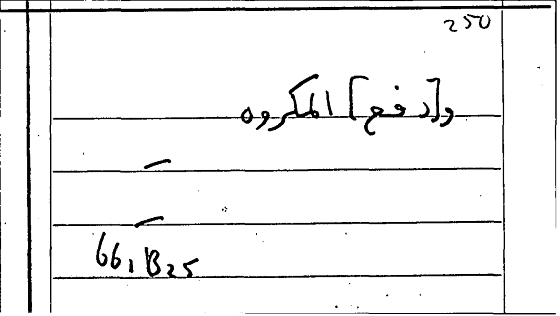 250
و[دفع] المكروه
66, B25